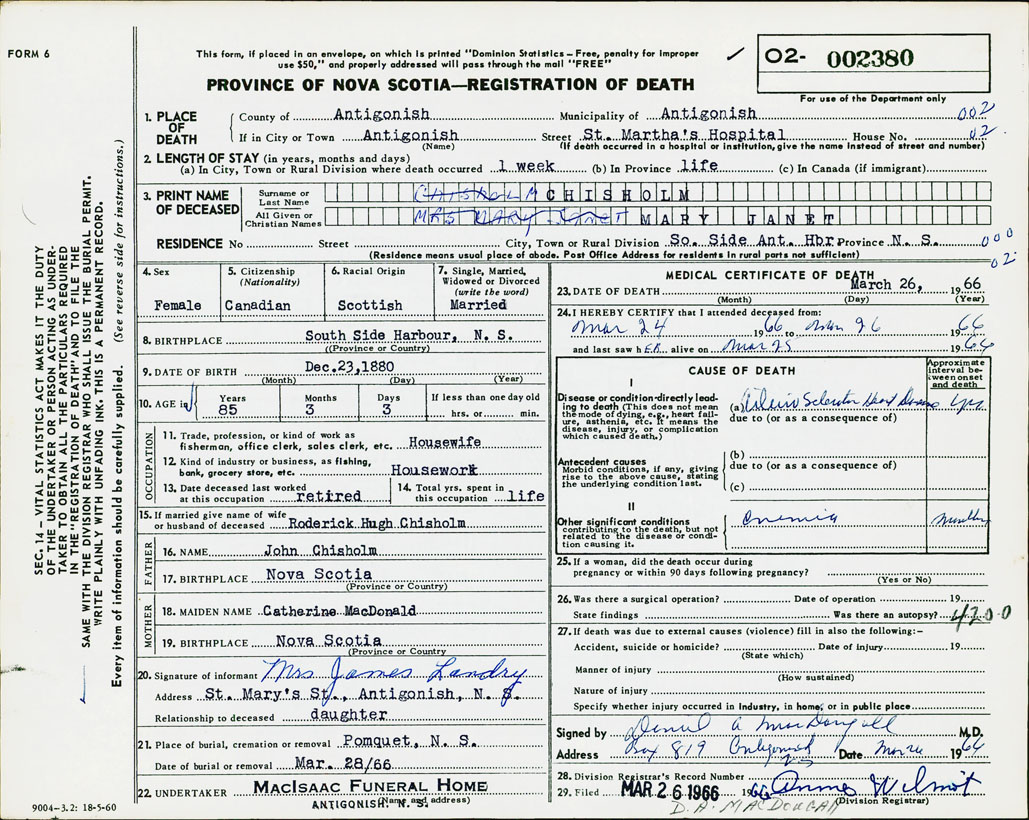 FORM 6
This form, if placed in an envelope, on which is printed "Dominion Statistics – Free, penalty for improper
use $50," and properly addressed will pass through the mail "FREE"
02- 002380
For use of the Department only
PROVINCE OF NOVA SCOTIA—REGISTRATION OF DEATH
1. PLACE OF DEATH
County of Antigonish Municipality of Antigonish 002
If in City or Town Antigonish Street St. Martha's Hospital House No. 02
(Name) (If death occurred in a hospital or institution, give the name instead of street and number)
2. LENGTH OF STAY (in years, months and days)
(a) In City, Town or Rural Division where death occurred 1 week (b) In Province life (c) In Canada (if immigrant)
3. PRINT NAME OF DECEASED
Surname or Last Name CHISHOLM CHISHOLM
All Given or Christian Names MRS MARY Janet MARY JANET
RESIDENCE No Street City, Town or Rural Division So. Side Ant. Hbr. Province N. S. 000
(Residence means usual place of abode. Post Office Address for residents in rural parts not sufficient) 02
4. Sex
Female
5. Citizenship
(Nationality)
Canadian
6. Racial Origin
Scottish
7. Single, Married,
Widowed or Divorced
(write the word)
Married
8. BIRTHPLACE South Side Harbour, N. S.
((Province or Country)
9. DATE OF BIRTH Dec.23,1880
(Month) (Day) (Year)
10. AGE in
Years 85
Months 3
Days 3
If less than one day old
hrs. or min.
OCCUPATION
11. Trade, profession, or kind of work as
fisherman, office clerk, sales clerk, etc. Housewife
12. Kind of industry or business, as fishing,
bank, grocery store, etc. Housework
13. Date deceased last worked
at this occupation retired
14. Total yrs. spent in
this occupation life
15. If married give name of wife
or husband of deceased Roderick Hugh Chisholm
FATHER
16. NAME John Chisholm
17. BIRTHPLACE Nova Scotia
(Province or Country)
MOTHER
18. MAIDEN NAME Catherine MacDonald
19. BIRTHPLACE Nova Scotia
(Province or Country
20. Signature of informant Mrs James Landry
Address St. Mary's St., Antigonish, N. S.
Relationship to deceased daughter
21. Place of burial, cremation or removal Pomquet, N. S.
Date of burial or removal Mar. 28/66
22. UNDERTAKER MACISAAC FUNERAL HOME
ANTIGONISH, N. S.
(Name and address)
MEDICAL CERTIFICATE OF DEATH
23. DATE OF DEATH March 26, 1966
(Month) (Day) (Year)
24. I HEREBY CERTIFY that I attended deceased from:
Mar 24 1966 to Mar 26 1966
and last saw h ER alive on Mar 25 1966
CAUSE OF DEATH
Approximate
interval be-
tween onset
and death
I
Disease or condition directly lead-
ing to death (This does not mean
the mode of dying, e.g., heart fail-
ure, asthenia, etc. It means the
disease, injury, or complication
which caused death.)
(a) Heart Disease yrs
due to (or as a consequence of)
Antecedent causes
Morbid conditions, if any, giving
rise to the above cause, stating
the underlying condition last.
(b)
due to (or as a consequence of)
(c)
II
Other significant conditions
contributing to the death, but not
related to the disease or condi-
tion causing it.
25. If a woman, did the death occur during
pregnancy or within 90 days following pregnancy?
(Yes or No)
26. Was there a surgical operation? Date of operation 19
State findings Was there an autopsy? 4200
27. If death was due to external causes (violence) fill in also the following:–
Accident, suicide or homicide? Date of injury 19
(State which)
Manner of injury
(How sustained)
Nature of injury
Specify whether injury occurred in industry, in home, or in public place
Signed by Daniel A MacDougall M.D.
Address Box 819 Antigonish NS Date Mar 26 1966
28. Division Registrar's Record Number
29. Filed MAR 26 1966 1966 Wilmot
(Division Registrar)
D. A. MACDOUGALL
SEC. 14 – VITAL STATISTICS ACT MAKES IT THE DUTY
OF THE UNDERTAKER OR PERSON ACTING AS UNDER-
TAKER TO OBTAIN ALL THE PARTICULARS REQUIRED
IN THE "REGISTRATION OF DEATH" AND TO FILE THE
SAME WITH THE DIVISION REGISTRAR WHO SHALL ISSUE THE BURIAL PERMIT.
WRITE PLAINLY WITH UNFADING INK. THIS IS A PERMANENT RECORD.
Every item of information should be carefully supplied. (See reverse side for instructions.)
9004-3.2: 18-5-60